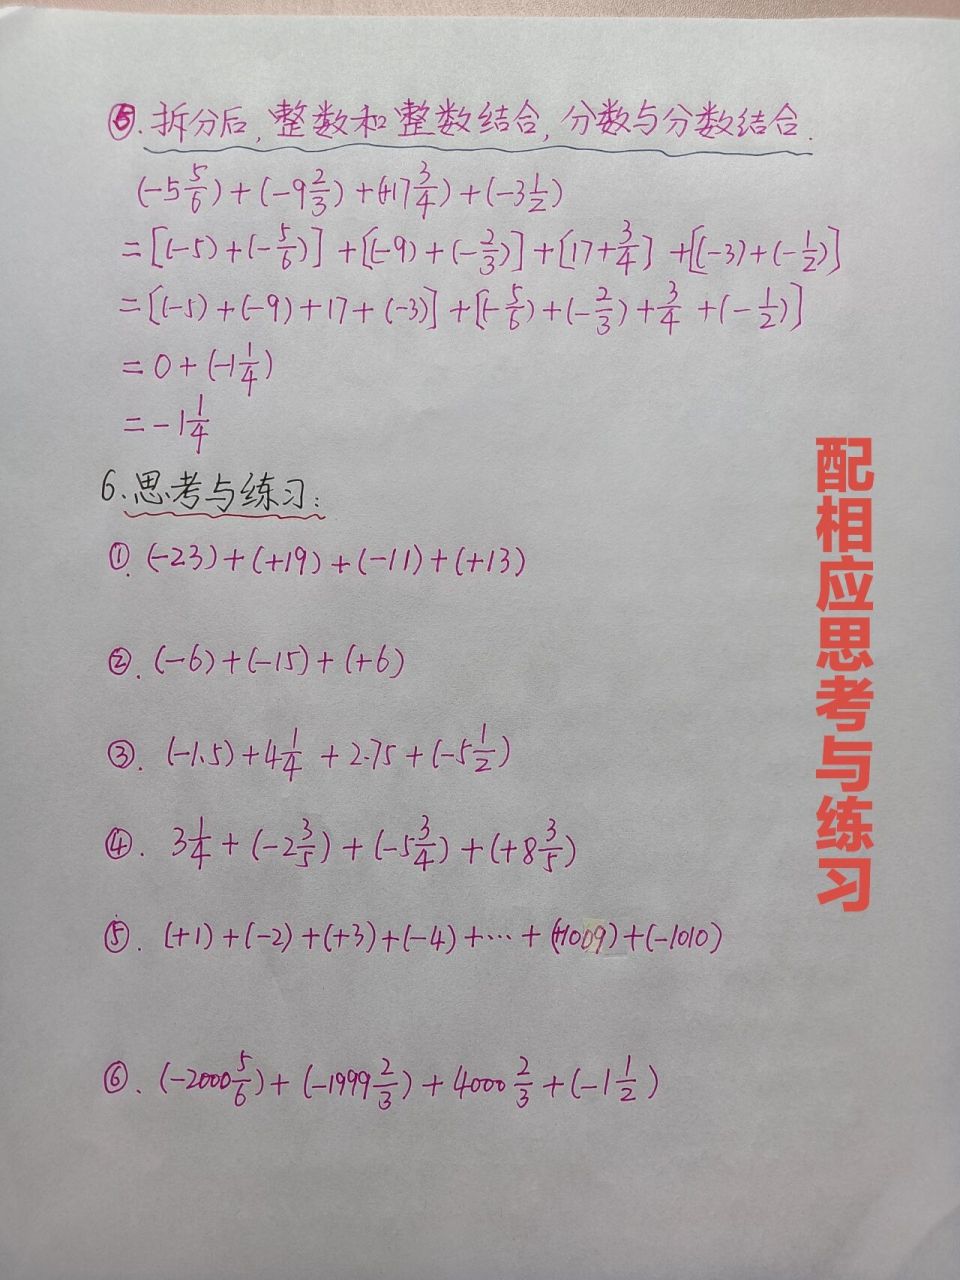 ⑤.拆分后,整数和整数结合,分数与分数结合.
(-5 5/6)+(-9 2/3)+(+17 3/4)+(-3 1/2)
=[(-5)+(-5/6)]+[(-9)+(-2/3)]+[17+3/4]+[(-3)+(-1/2)]
=[(-5)+(-9)+17+(-3)]+[(-5/6)+(-2/3)+3/4+(-1/2)]
=0+(-1 1/4)
=-1 1/4
6.思考与练习:
①.(-23)+(+19)+(-11)+(+13)
②.(-6)+(-15)+(+6)
③.(-1.5)+4 1/4+2.75+(-5 1/2)
④.3 1/4+(-2 3/5)+(-5 3/4)+(+8 3/5)
⑤.(+1)+(-2)+(+3)+(-4)+…+(+1009)+(-1010)
⑥.(-2000 5/6)+(-1999 2/3)+4000 2/3+(-1 1/2)
配相应思考与练习